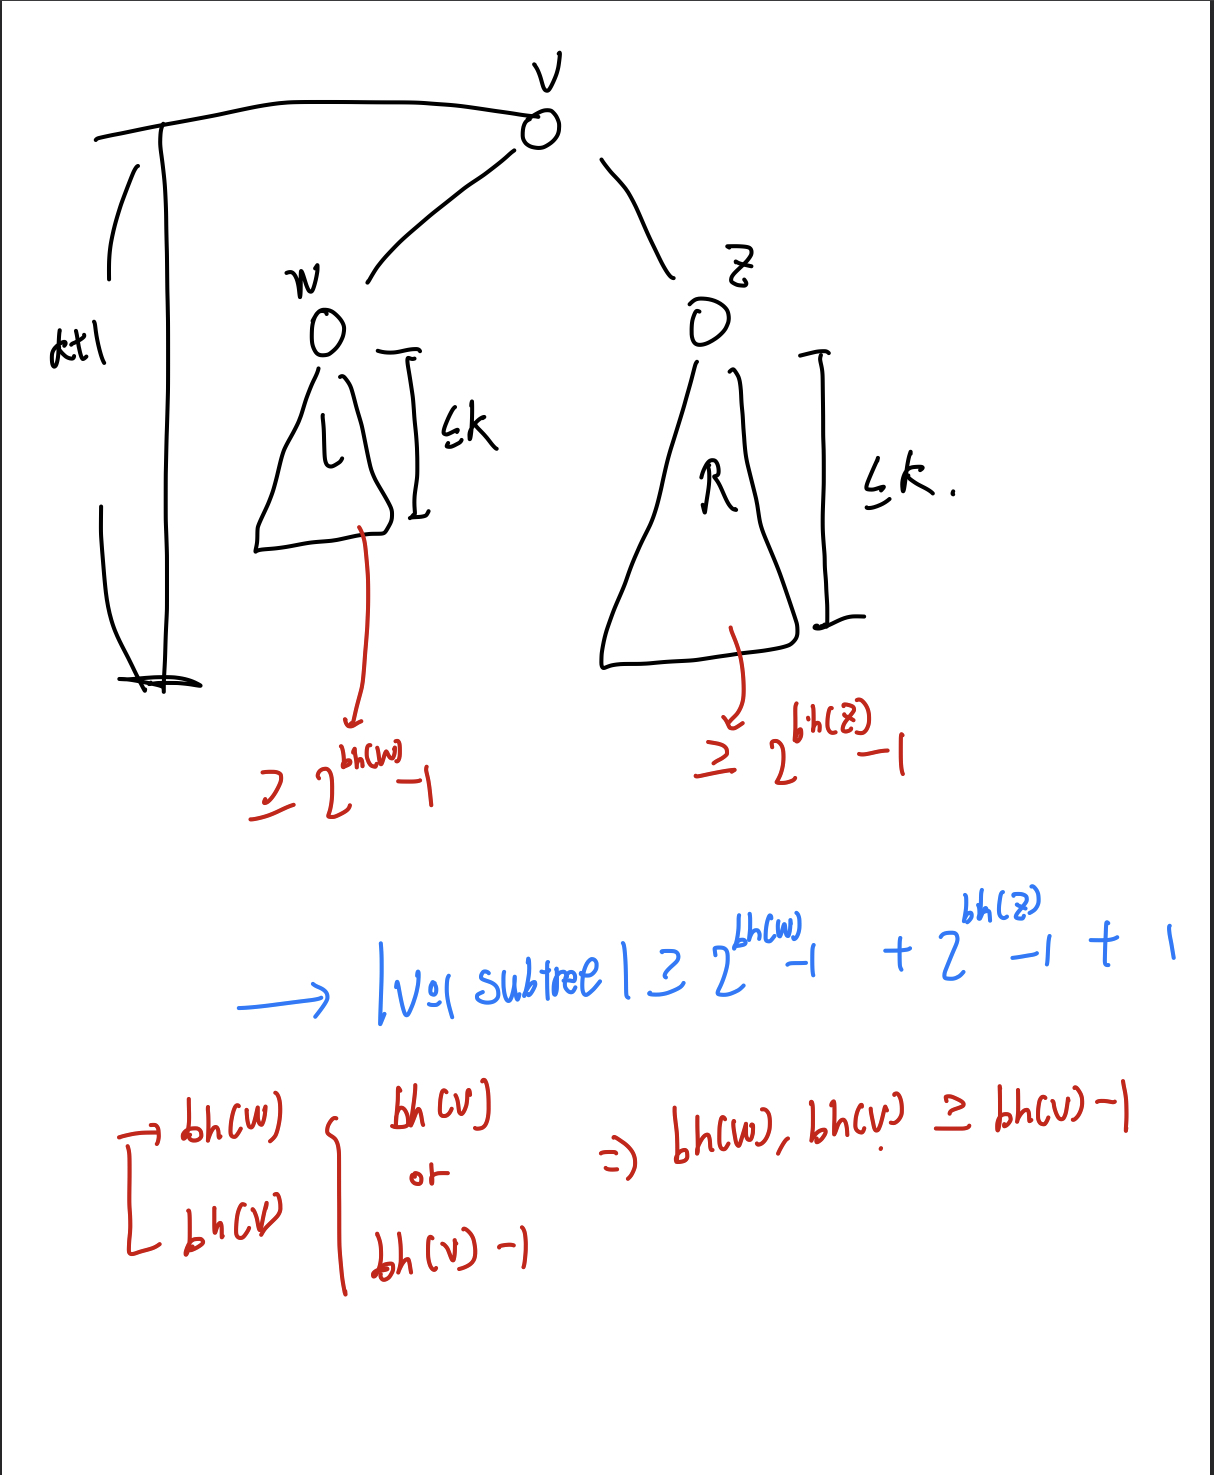 V
W
Z
k+1
L
≤k
R
≤k.
≥ 2^bh(w) -1
≥ 2^bh(z) -1
→ |V의 subtree| ≥ 2^bh(w) -1 + 2^bh(z) -1 + 1
bh(w)
bh(v)
bh(v)
or
bh(v) -1
⇒ bh(w), bh(v) ≥ bh(v) -1